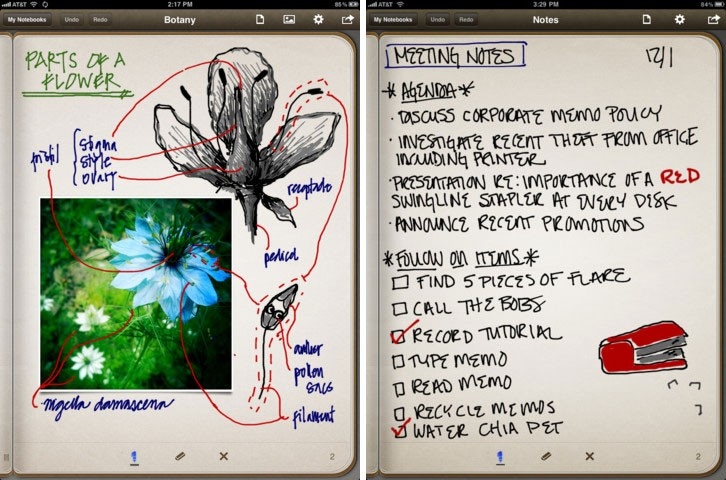 AT&T
2:17 PM
85%
My Notebooks
Undo
Redo
Botany
PARTS OF A
FLOWER
pistil
stigma
style
ovary
receptacle
pedicel
anther
pollen
sacs
filament
nigella damascena
2
AT&T
3:29 PM
84%
My Notebooks
Undo
Redo
Notes
MEETING NOTES
12/1
* AGENDA *
· DISCUSS CORPORATE MEMO POLICY
· INVESTIGATE RECENT THEFT FROM OFFICE
INCLUDING PRINTER
· PRESENTATION RE: IMPORTANCE OF A RED
SWINGLINE STAPLER AT EVERY DESK
· ANNOUNCE RECENT PROMOTIONS
* FOLLOW ON ITEMS *
FIND 5 PIECES OF FLARE
CALL THE BOBS
RECORD TUTORIAL
TYPE MEMO
READ MEMO
RECYCLE MEMOS
WATER CHIA PET
2